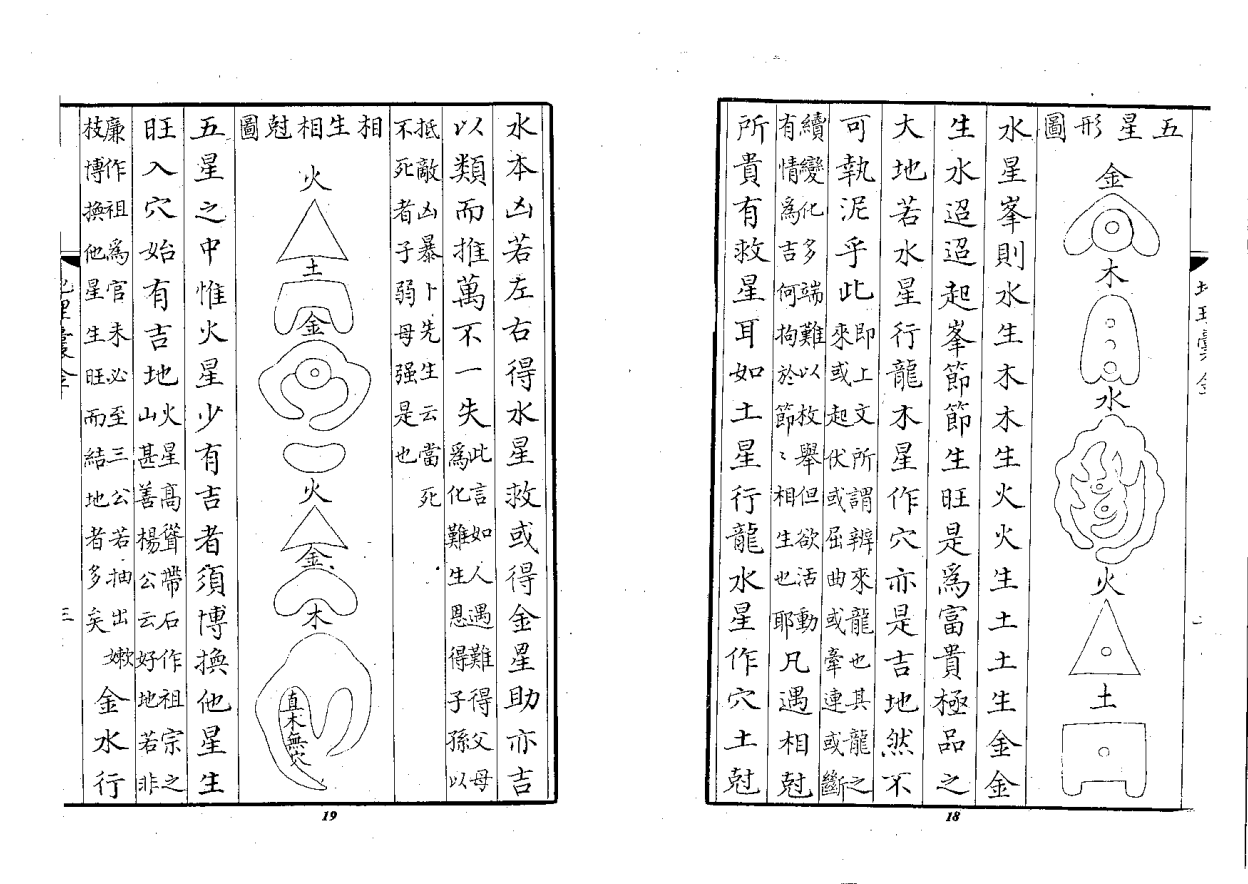 五星形圖
金
木
水
火
土
水星峯則水生木木生火火生土土生金金
生水迢迢起峯節節生旺是爲富貴極品之
大地若水星行龍木星作穴亦是吉地然不
可執泥乎此即上文所謂辨來龍也其龍之來或起伏或屈曲或牽連或斷
續變化多端難以枚舉但欲活動有情爲吉何拘於節〻相生也耶凡遇相尅
所貴有救星耳如土星行龍水星作穴土尅
18
水本凶若左右得水星救或得金星助亦吉
以類而推萬不一失此言如人遇難得父母爲化難生恩得子孫以
抵敵凶暴卜先生云當死不死者子弱母强是也
相生相尅圖
火
土
金
火
金
木
直木無穴
五星之中惟火星少有吉者須博換他星生
旺入穴始有吉地火星高聳帶石作祖宗之山甚善楊公云好地若非
廉作祖爲官未必至三公若抽出嫩枝博換他星生旺而結地者多矣金水行
三
19